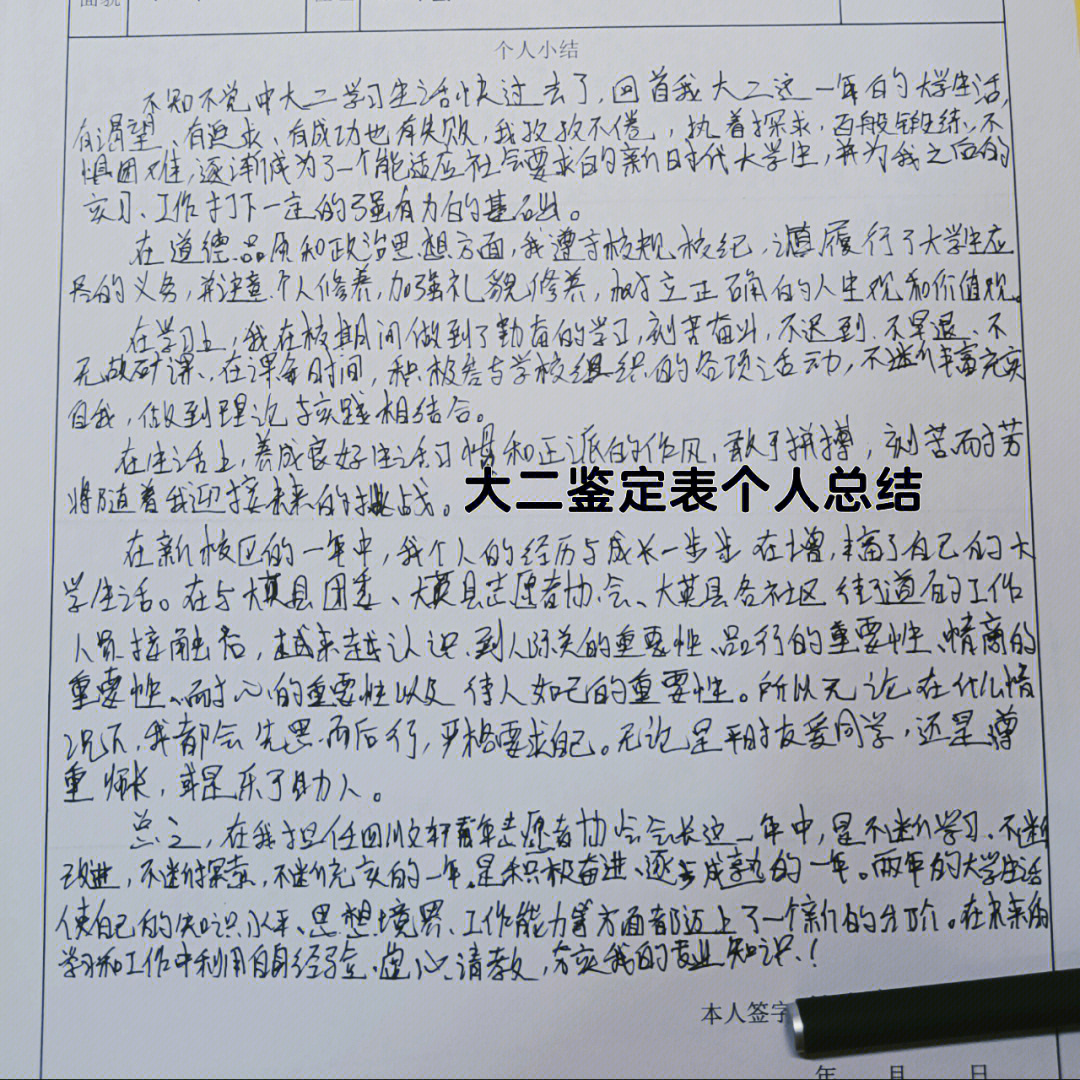 面貌
个人小结
不知不觉中大二学习生活快过去了,回首我大二这一年的大学生活,
有渴望、有追求、有成功也有失败,我孜孜不倦,执着探求,百般锻练,不
惧困难,逐渐成为了一个能适应社会要求的新时代大学生,并为我之后的
实习、工作打下一定的强有力的基础。
在道德品质和政治思想方面,我遵守校规校纪,认真履行了大学生应
尽的义务,并注意个人修养,加强礼貌修养,树立正确的人生观和价值观。
在学习上,我在校期间做到了勤奋的学习,刻苦奋斗,不迟到、不早退、不
无故旷课、在课每时间,积极参与学校组织的各项活动,不断丰富充实
自我,做到理论与实践相结合。
在生活上,养成良好生活习惯和正派的作风,敢于拼搏,刻苦而耐劳
将随着我迎接未来的挑战。
大二鉴定表个人总结
在新校区的一年中,我个人的经历与成长一步步在增,丰富了自己的大
学生活。在与大英县团委、大英县志愿者协会、大英县各社区街道有的工作
人员接触后,越来越认识到人际关的重要性、品行的重要性、情商的
重要性、耐心的重要性以及待人如己的重要性。所以无论在什么情
况下,我都会先思而后行,严格要求自己。无论是平时友爱同学,还是尊
重师长,或是乐于助人。
总之,在我担任四川文轩青年志愿者协会会长这一年中,是不断学习、不断
改进,不断探索,不断充实的一年,是积极奋进、逐步成熟的一年。两年的大学生活
使自己的知识水平、思想境界、工作能力等方面都迈上了一个新的台阶。在未来的
学习和工作中利用自身经验、虚心请教,夯实我的专业知识!
本人签字
年 月 日